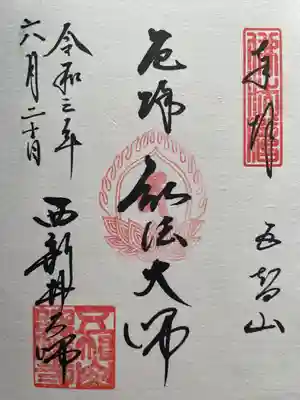 奉拝
五智山
厄除弘法大師
西新井大師
令和三年
六月二十日